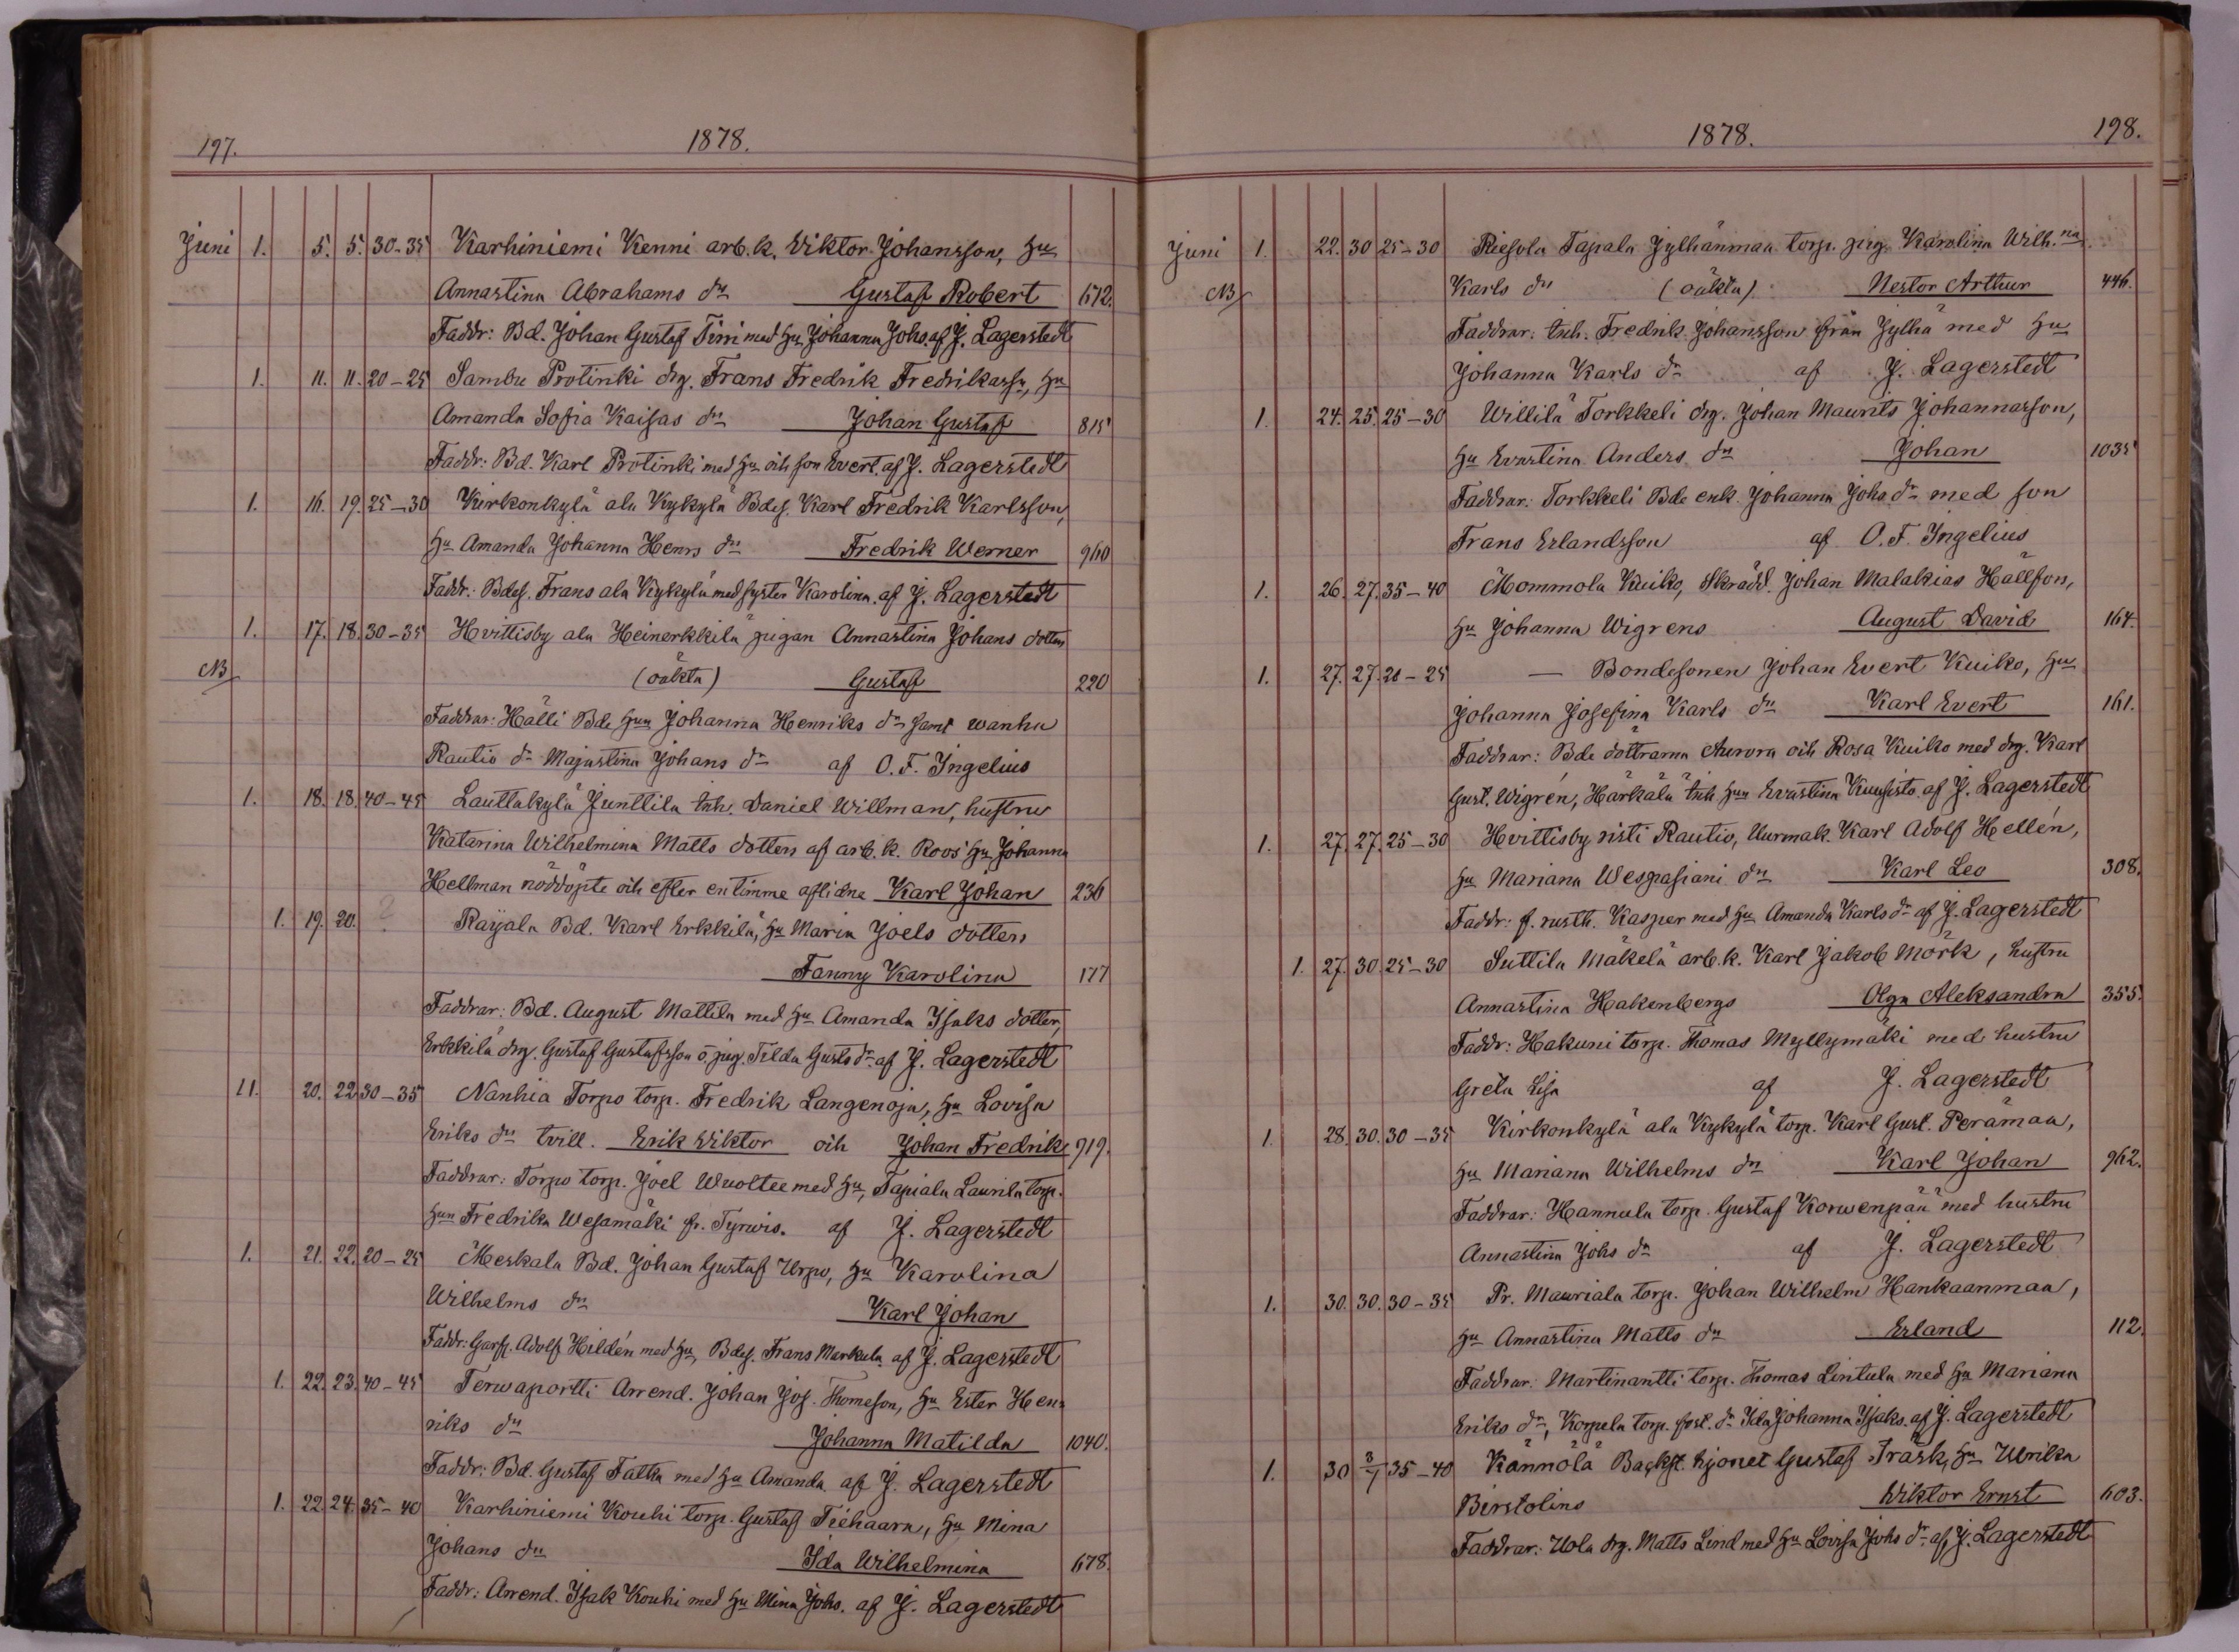 197. 1878.
Juni 1. 5. 5. 30-35 Karhiniemi Kenni arb.k. Viktor Johansson, hu
Annastina Abrahams dn Gustaf Robert 672.
Faddr: Bd. Johan Gustaf Tiri med hu Johanna Johs. af J. Lagerstedt
1. 11. 11. 20-25 Sambu Protinki drg. Frans Fredrik Fredrikssn, hu
Amanda Sofia Kaisas dn Johan Gustaf 815
Faddr: Bd. Karl Protinki med hu och son Evert. af J. Lagerstedt
1. 16. 19. 25-30 Kirkonkylä ala Kykylä Bdes. Karl Fredrik Karlsson,
hu Amanda Johanna Henrs dn Fredrik Werner 960
Faddr.: Bdes. Frans ala Kykylä med syster Karolina. af J. Lagerstedt
1. 17. 18. 30-35 Hvittisby ala Heinerkkilä pigan Annastina Johans dotters
NB (oäkta) Gustaf 220
Faddrar: Hälli Bde hun Johanna Henriks dr samt wanha
Rautio dr Majastina Johans dr af O. F. Ingelius
1. 18. 18. 40-45 Lauttakylä Junttila inh. Daniel Willman, hustru
Katarina Wilhelmina Matts dotters af arb.k. Roos' hu Johanna
Hellman nöddöpte och efter en timme aflidne Karl Johan 236
1. 19. 20. ? Raijala Bd. Karl Erkkilä, hu Maria Joels dotters
Fanny Karolina 177
Faddrar: Bd. August Mattila med hu Amanda Isaks dotter,
Erkkilä drg. Gustaf Gustafsson o. pig. Tilda Gusts dr af J. Lagerstedt
11. 20. 22. 30-35 Nanhia Torpo torp. Fredrik Langenoja, hu Lovisa
Eriks dn tvill. Erik Viktor och Johan Fredrik 719.
Faddrar: Torpo torp. Joel Wuoltee med hu, Tapiala Laurila torp.
hun Fredrika Wesamäki fr. Tyrwis. af J. Lagerstedt
1. 21. 22. 20-25 Meskala Bd. Johan Gustaf Urpo, hu Karolina
Wilhelms dn Karl Johan
Faddr: Garf. Adolf Hildén med hu, Bdes. Frans Markula af J. Lagerstedt
1. 22. 23. 40-45 Terwaportti Arrend. Johan Jos. Thomeson, hu Ester Hen-
riks dn Johanna Matilda 1040.
Faddr: Bd. Gustaf Fatka med hu Amanda af J. Lagerstedt
1. 22. 24. 35-40 Karhiniemi Kouhi torp. Gustaf Tiehaara, hu Mina
Johans dn Ida Wilhelmina 678.
Faddr: Arrend. Isak Kouhi med hu Mina Johs. af J. Lagerstedt
1878. 198.
Juni 1. 22. 30 25-30 Riesola Tapala Jylhänmaa torp. pig. Karolina Wilh.na
NB Karls dn (oäkta) Nestor Arthur 446.
Faddrar: inh. Fredrik Johansson från Jylhä med hu
Johanna Karls dr af J. Lagerstedt
1. 24. 25. 25-30 Willilä Torkkeli drg. Johan Maurits Johannasson,
hu Evastina Anders dn Johan 1035
Faddrar: Torkkeli Bde enk. Johanna Johs dr med son
Frans Erlandsson af O. F. Ingelius
1. 26. 27. 35-40 Mommola Kuiko, Skrädd. Johan Malakias Hällfon,
hu Johanna Wigrens August David 164.
1. 27. 27. 20-25 — Bondesonen Johan Evert Kuiko, hu
Johanna Josefina Karls dn Karl Evert 161.
Faddrar: Bde döttrarna Aurora och Rosa Kuiko med drg. Karl
Gust. Wigrén, Härkälä inh hun Evastina Kuusisto. af J. Lagerstedt
1. 27. 27. 25-30 Hvittisby risti Rautio, Uurmak. Karl Adolf Hellén,
hu Mariana Wespasiani dn Karl Leo 308.
Faddr: f. rusth. Kasper med hu Amanda Karls dr af J. Lagerstedt
1. 27. 30. 25-30 Suttila Mäkelä arb.k. Karl Jakob Mörk, hustru
Annastina Hakenbergs Olga Aleksandra 355.
Faddr: Hakuni torp. Thomas Myllymäki med hustru
Greta Lisa af J. Lagerstedt
1. 28. 30. 30-35 Kirkonkylä ala Kykylä torp. Karl Gust. Perämaa,
hu Mariana Wilhelms dn Karl Johan 962.
Faddrar: Hannula torp. Gustaf Korwenpää med hustru
Annastina Johs dr af J. Lagerstedt
1. 30. 30. 30-35 Pr. Mauriala torp. Johan Wilhelm Hankaanmaa,
hu Annastina Matts dn Erland 112.
Faddrar: Martinantti torp. Thomas Lintula med hu Mariana
Eriks dr, Korpela torp. fost. dr Ida Johanna Isaks. af J. Lagerstedt
1. 30 3/7 35-40 Kännölä Backst. hjonet Gustaf Träsk, hu Ulrika
Birstolins Wiktor Ernst 603.
Faddrar: Uola drg. Matts Lind med hu Lovisa Johs dr af J. Lagerstedt